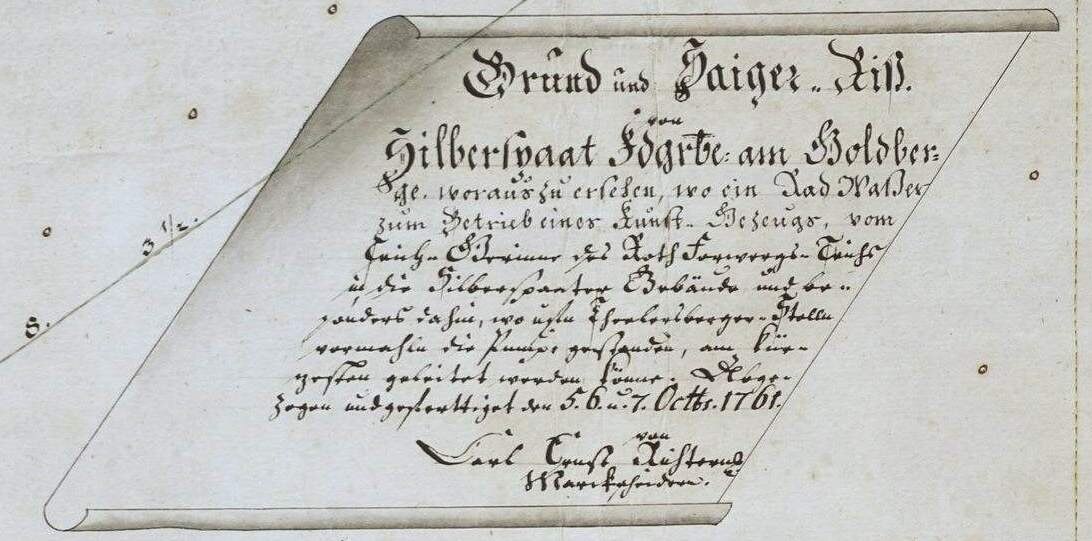 Grund und Saiger-Riß.
von
Silberspaat Fdgrbe: am Goldber=
ge. woraus zu ersehen, wo ein Rad Waßer
zum Betrieb eines Kunst-Gezeugs, vom
Teich-Gerinne des Roth Forwergs-Teichs
in die Silberspaater Gebäude und be=
sonders dahin, wo ufn Stolln
vormahln die gestanden, am kür=
zesten geleitet werden könne. Abge=
zogen und geferttiget den 5. 6. u. 7. Octbr. 1761.
von
Carl Ernst Richtern
Marckscheidern.
3 1/2.
S.